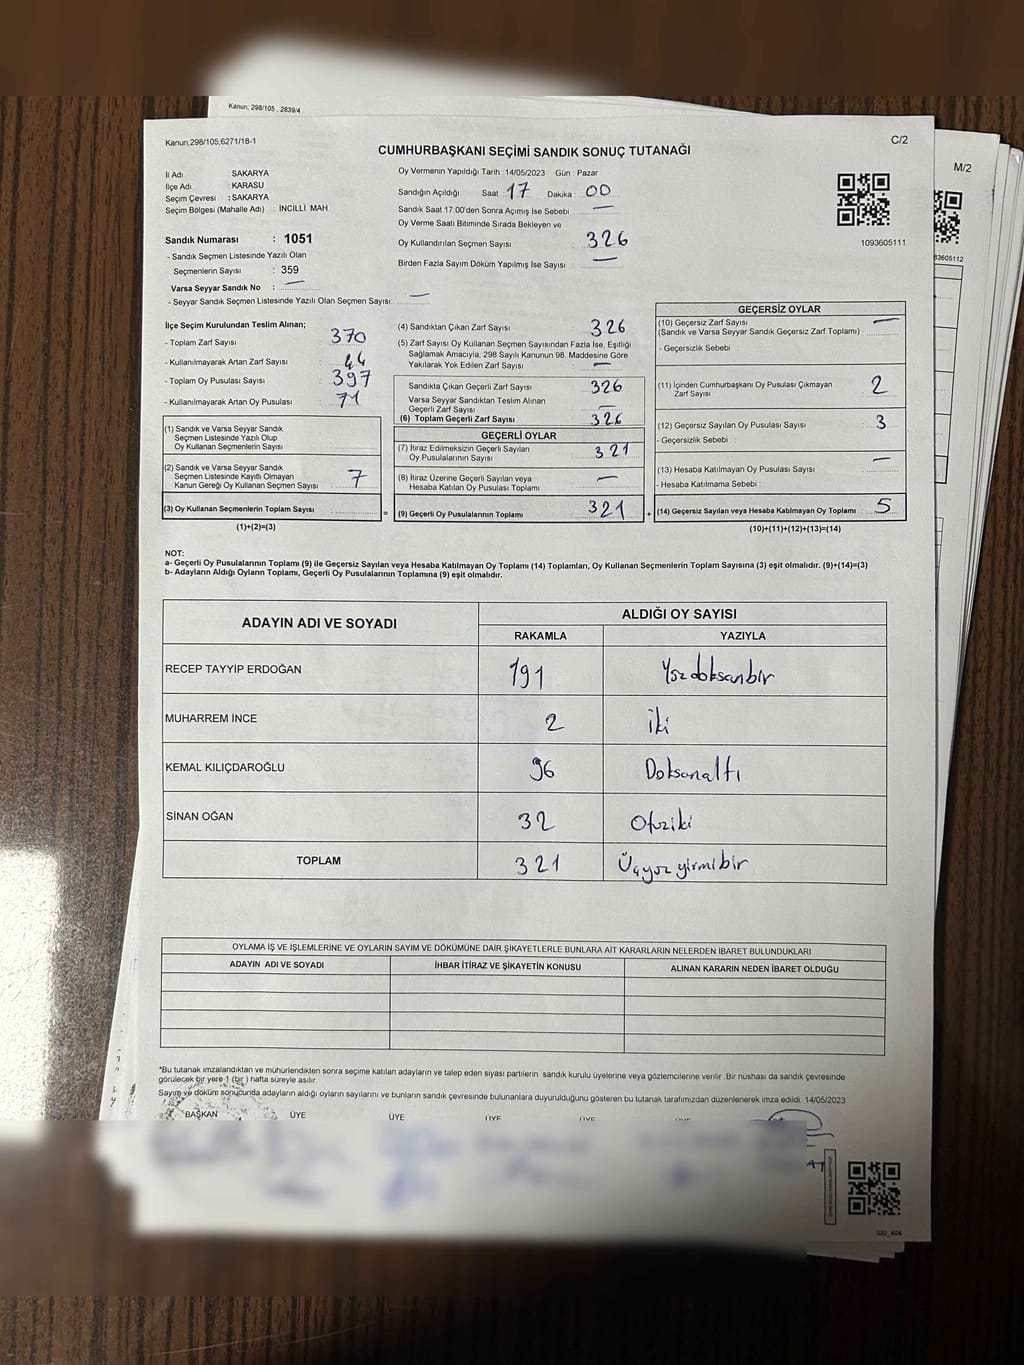 Kanun; 298/105 , 2839/4
Kanun;298/105;6271/18-1
C/2
M/2
CUMHURBAŞKANI SEÇİMİ SANDIK SONUÇ TUTANAĞI
İl Adı : SAKARYA
İlçe Adı : KARASU
Seçim Çevresi : SAKARYA
Seçim Bölgesi (Mahalle Adı) : İNCİLLİ MAH
Sandık Numarası : 1051
- Sandık Seçmen Listesinde Yazılı Olan
Seçmenlerin Sayısı : 359
Varsa Seyyar Sandık No : —
- Seyyar Sandık Seçmen Listesinde Yazılı Olan Seçmen Sayısı: —
Oy Vermenin Yapıldığı Tarih :14/05/2023 Gün : Pazar
Sandığın Açıldığı Saat 17 Dakika : 00
Sandık Saat 17:00'den Sonra Açılmış İse Sebebi : —
Oy Verme Saati Bitiminde Sırada Bekleyen ve
Oy Kullandırılan Seçmen Sayısı : 326
Birden Fazla Sayım Döküm Yapılmış İse Sayısı : —
1093605111
83605112
İlçe Seçim Kurulundan Teslim Alınan;
- Toplam Zarf Sayısı : 370
- Kullanılmayarak Artan Zarf Sayısı : 44
- Toplam Oy Pusulası Sayısı : 397
- Kullanılmayarak Artan Oy Pusulası : 71
(1) Sandık ve Varsa Seyyar Sandık
Seçmen Listesinde Yazılı Olup
Oy Kullanan Seçmenlerin Sayısı :
(2) Sandık ve Varsa Seyyar Sandık
Seçmen Listesinde Kayıtlı Olmayan
Kanun Gereği Oy Kullanan Seçmen Sayısı : 7
(3) Oy Kullanan Seçmenlerin Toplam Sayısı :
(1)+(2)=(3)
(4) Sandıktan Çıkan Zarf Sayısı : 326
(5) Zarf Sayısı Oy Kullanan Seçmen Sayısından Fazla İse, Eşitliği
Sağlamak Amacıyla, 298 Sayılı Kanunun 98. Maddesine Göre
Yakılarak Yok Edilen Zarf Sayısı : —
Sandıkta Çıkan Geçerli Zarf Sayısı : 326
Varsa Seyyar Sandıktan Teslim Alınan
Geçerli Zarf Sayısı : —
(6) Toplam Geçerli Zarf Sayısı : 326
GEÇERLİ OYLAR
(7) İtiraz Edilmeksizin Geçerli Sayılan
Oy Pusulalarının Sayısı : 321
(8) İtiraz Üzerine Geçerli Sayılan veya
Hesaba Katılan Oy Pusulası Toplamı : —
= (9) Geçerli Oy Pusulalarının Toplamı : 321 +
GEÇERSİZ OYLAR
(10) Geçersiz Zarf Sayısı : —
(Sandık ve Varsa Seyyar Sandık Geçersiz Zarf Toplamı)
- Geçersizlik Sebebi :
(11) İçinden Cumhurbaşkanı Oy Pusulası Çıkmayan
Zarf Sayısı : 2
(12) Geçersiz Sayılan Oy Pusulası Sayısı : 3
- Geçersizlik Sebebi :
(13) Hesaba Katılmayan Oy Pusulası Sayısı : —
- Hesaba Katılmama Sebebi :
(14) Geçersiz Sayılan veya Hesaba Katılmayan Oy Toplamı : 5
(10)+(11)+(12)+(13)=(14)
NOT:
a- Geçerli Oy Pusulalarının Toplamı (9) ile Geçersiz Sayılan veya Hesaba Katılmayan Oy Toplamı (14) Toplamları, Oy Kullanan Seçmenlerin Toplam Sayısına (3) eşit olmalıdır. (9)+(14)=(3)
b- Adayların Aldığı Oyların Toplamı, Geçerli Oy Pusulalarının Toplamına (9) eşit olmalıdır.
ADAYIN ADI VE SOYADI ALDIĞI OY SAYISI
RAKAMLA YAZIYLA
RECEP TAYYİP ERDOĞAN 191 Yüzdoksanbir
MUHARREM İNCE 2 İki
KEMAL KILIÇDAROĞLU 96 Doksanaltı
SİNAN OĞAN 32 Otuziki
TOPLAM 321 Üçyüzyirmibir
OYLAMA İŞ VE İŞLEMLERİNE VE OYLARIN SAYIM VE DÖKÜMÜNE DAİR ŞİKAYETLERLE BUNLARA AİT KARARLARIN NELERDEN İBARET BULUNDUKLARI
ADAYIN ADI VE SOYADI İHBAR İTİRAZ VE ŞİKAYETİN KONUSU ALINAN KARARIN NEDEN İBARET OLDUĞU
*Bu tutanak imzalandıktan ve mühürlendikten sonra seçime katılan adayların ve talep eden siyasi partilerin sandık kurulu üyelerine veya gözlemcilerine verilir .Bir nüshası da sandık çevresinde
görülecek bir yere 1 (bir ) hafta süreyle asılır.
Sayım ve döküm sonucunda adayların aldığı oyların sayılarını ve bunların sandık çevresinde bulunanlara duyurulduğunu gösteren bu tutanak tarafımızdan düzenlenerek imza edildi. 14/05/2023
BAŞKAN ÜYE ÜYE ÜYE ÜYE
GSI_404